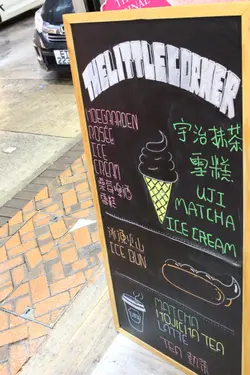 THE LITTLE CORNER
HOEGAARDEN
ROSÉE
ICE
CREAM
雪糕
宇治抹茶
雪糕
UJI
MATCHA
ICE CREAM
冰火
ICE BUN
MATCHA
HOJICHA TEA
LATTE
TEA